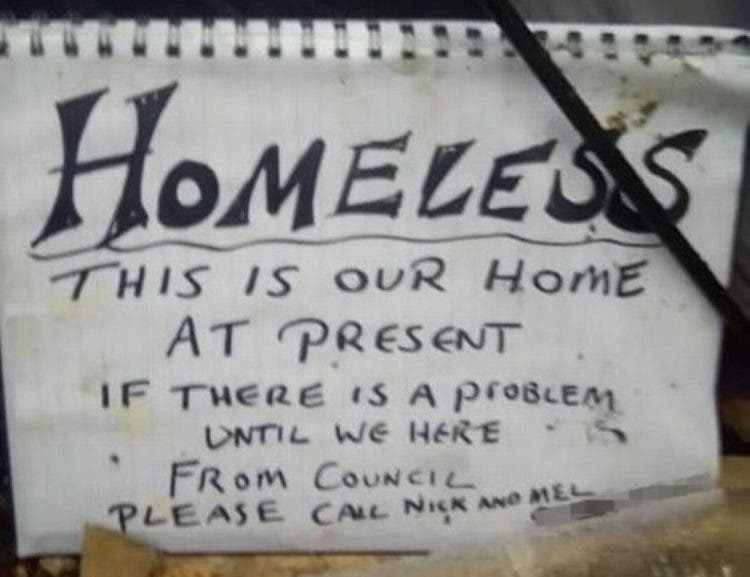 HOMELESS
THIS IS OUR HOME
AT PRESENT
IF THERE IS A PrOBLEM
UNTIL WE HERE
FROM COUNCIL
PLEASE CALL NICK AND MEL